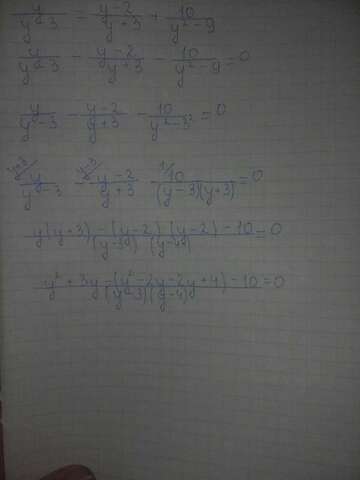 y/(y-3) = (y-2)/(y+3) + 10/(y²-9)
y/(y-3) - (y-2)/(y+3) - 10/(y²-9) = 0
y/(y-3) - (y-2)/(y+3) - 10/(y²-3²) = 0
y/(y-3) - (y-2)/(y+3) 10/((y-3)(y+3)) = 0
(y(y+3) - (y-2)(y-2) - 10)/((y-3)(y-4)) = 0
(y² + 3y - (y² - 2y - 2y + 4) - 10)/((y-3)(y-4)) = 0